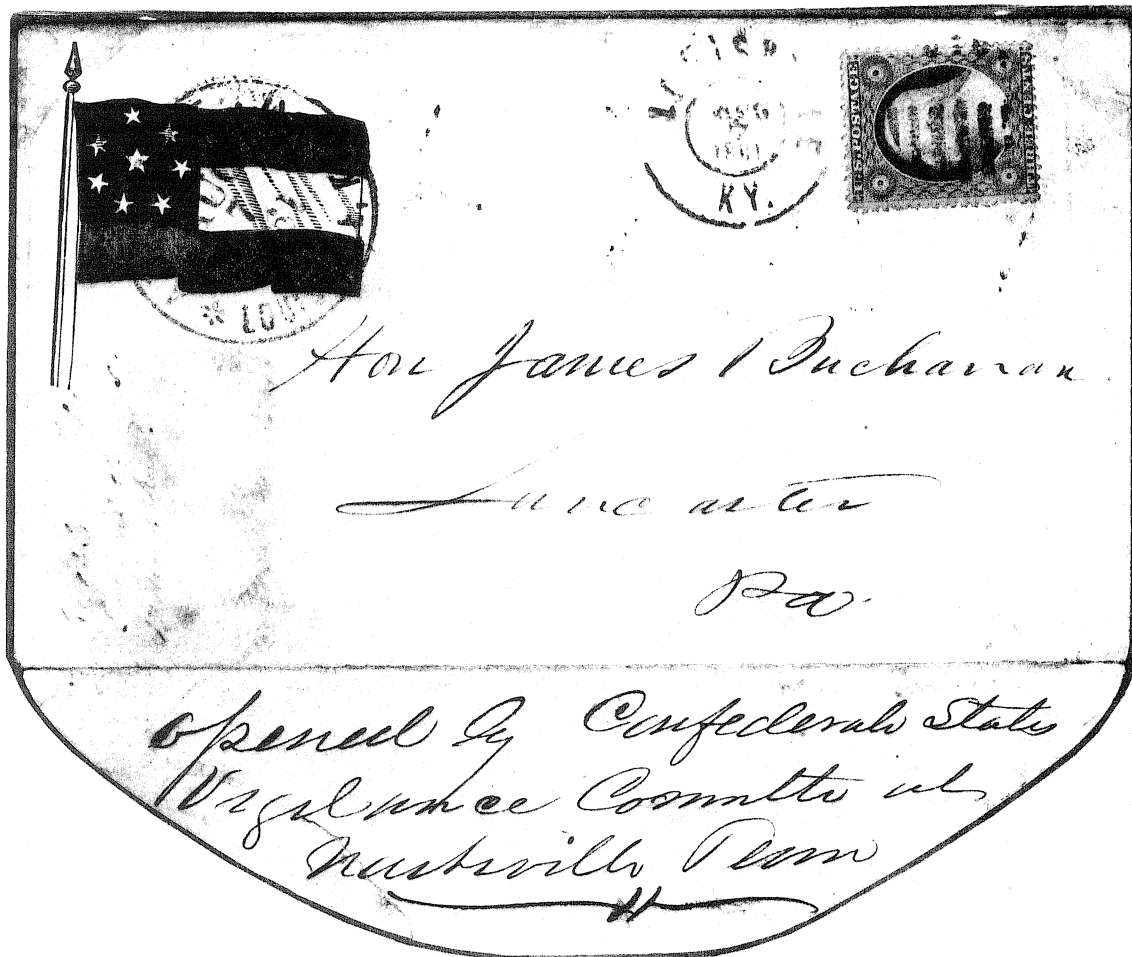 KY.
U.S. POSTAGE
THREE CENTS
Hon James Buchanan
Lancaster
Pa.
opened by Confederate States
Vigilance Committe at
Nashville Tenn